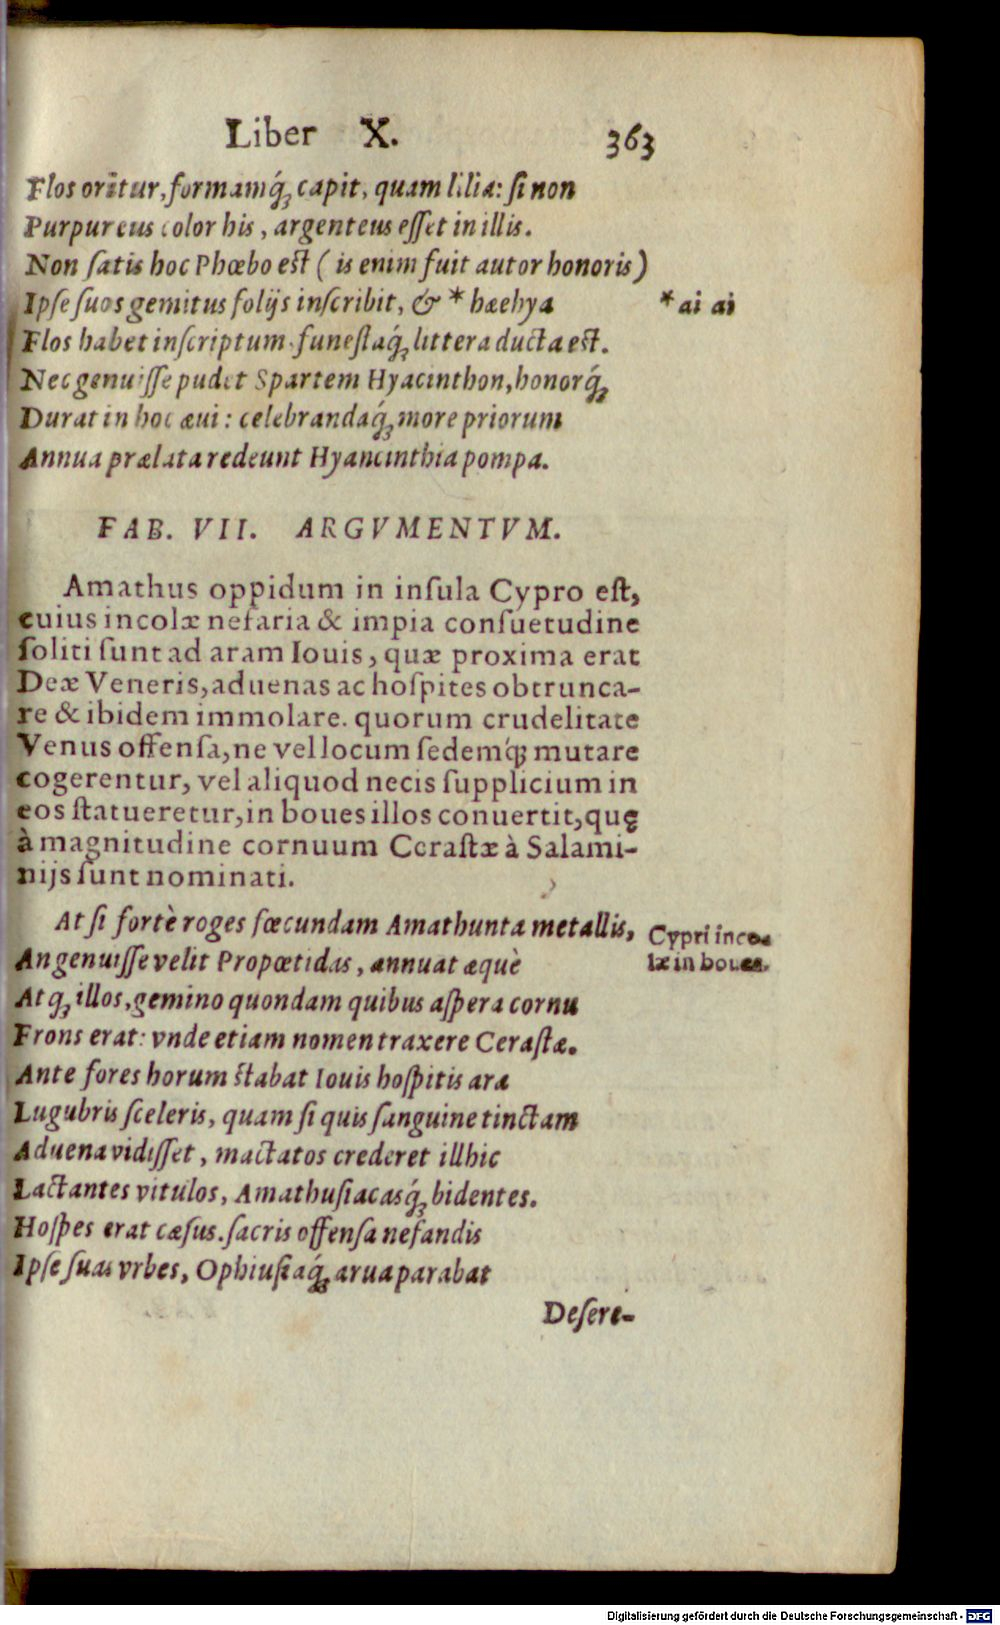 Liber X. 363
Flos oritur, formamq́; capit, quam lilia: ſi non
Purpureus color his, argenteus eſſet in illis.
Non ſatis hoc Phœbo est ( is enim fuit autor honoris)
Ipſe ſuos gemitus folijs inſcribit, & * hæehya
* ai ai
Flos habet inſcriptum, funeſtaq́; littera ducta est.
Nec genuiſſe pudet Spartem Hyacinthon, honorq́;
Durat in hoc æui: celebrandaq́; more priorum
Annua prælata redeunt Hyancinthia pompa.
FAB. VII. ARGVMENTVM.
Amathus oppidum in inſula Cypro eſt,
cuius incolæ nefaria & impia conſuetudine
ſoliti ſunt ad aram Iouis, quæ proxima erat
Deæ Veneris, aduenas ac hoſpites obtrunca-
re & ibidem immolare. quorum crudelitate
Venus offenſa, ne vel locum ſedemq́; mutare
cogerentur, vel aliquod necis ſupplicium in
eos ſtatueretur, in boues illos conuertit, quę
à magnitudine cornuum Ceraſtæ à Salami-
nijs ſunt nominati.
At ſi fortè roges fœcundam Amathunta metallis,
Cypri inco-
læ in boues.
An genuiſſe velit Propœtidas, annuat æquè
Atq; illos, gemino quondam quibus aſpera cornu
Frons erat: vnde etiam nomen traxere Ceraſtæ.
Ante fores horum stabat Iouis hoſpitis ara
Lugubris ſceleris, quam ſi quis ſanguine tinctam
Aduena vidiſſet, mactatos crederet illhic
Lactantes vitulos, Amathuſiacasq́; bidentes.
Hoſpes erat cæſus. ſacris offenſa nefandis
Ipſe ſuas vrbes, Ophiuſiaq́; arua parabat
Deſere-
Digitalisierung gefördert durch die Deutsche Forschungsgemeinschaft - DFG